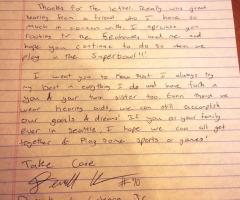 Thanks for the letter. Really was great
hearing from a friend who I have so
much in common with. I apriciate you
rooting for the Seahawks and me and
hope you continue to do so when we
play in the Superbowl!!
I want you to know that I always try
my best in everything I do and have faith in
you & your twin sister too. Even though we
wear hearing aids, we can still accomplish
our goals & dreams! If you or your family
ever in Seattle, I hope we can all get
together & Play some sports or games!
Take Care
#40